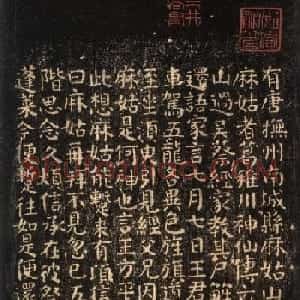 有唐撫州南城縣麻姑山
麻姑者葛稚川神仙傳云
山過吳蔡經家教其尸解
還語家言七月七日王君
車駕五龍各異色旌旗導
至坐須臾引見經父兄因
麻姑是何神也言王方平
此想麻姑能蹔來有頃信
曰麻姑再拜不見忽已五
階思念久煩信承在彼登
蓬萊今便蹔往如是便還